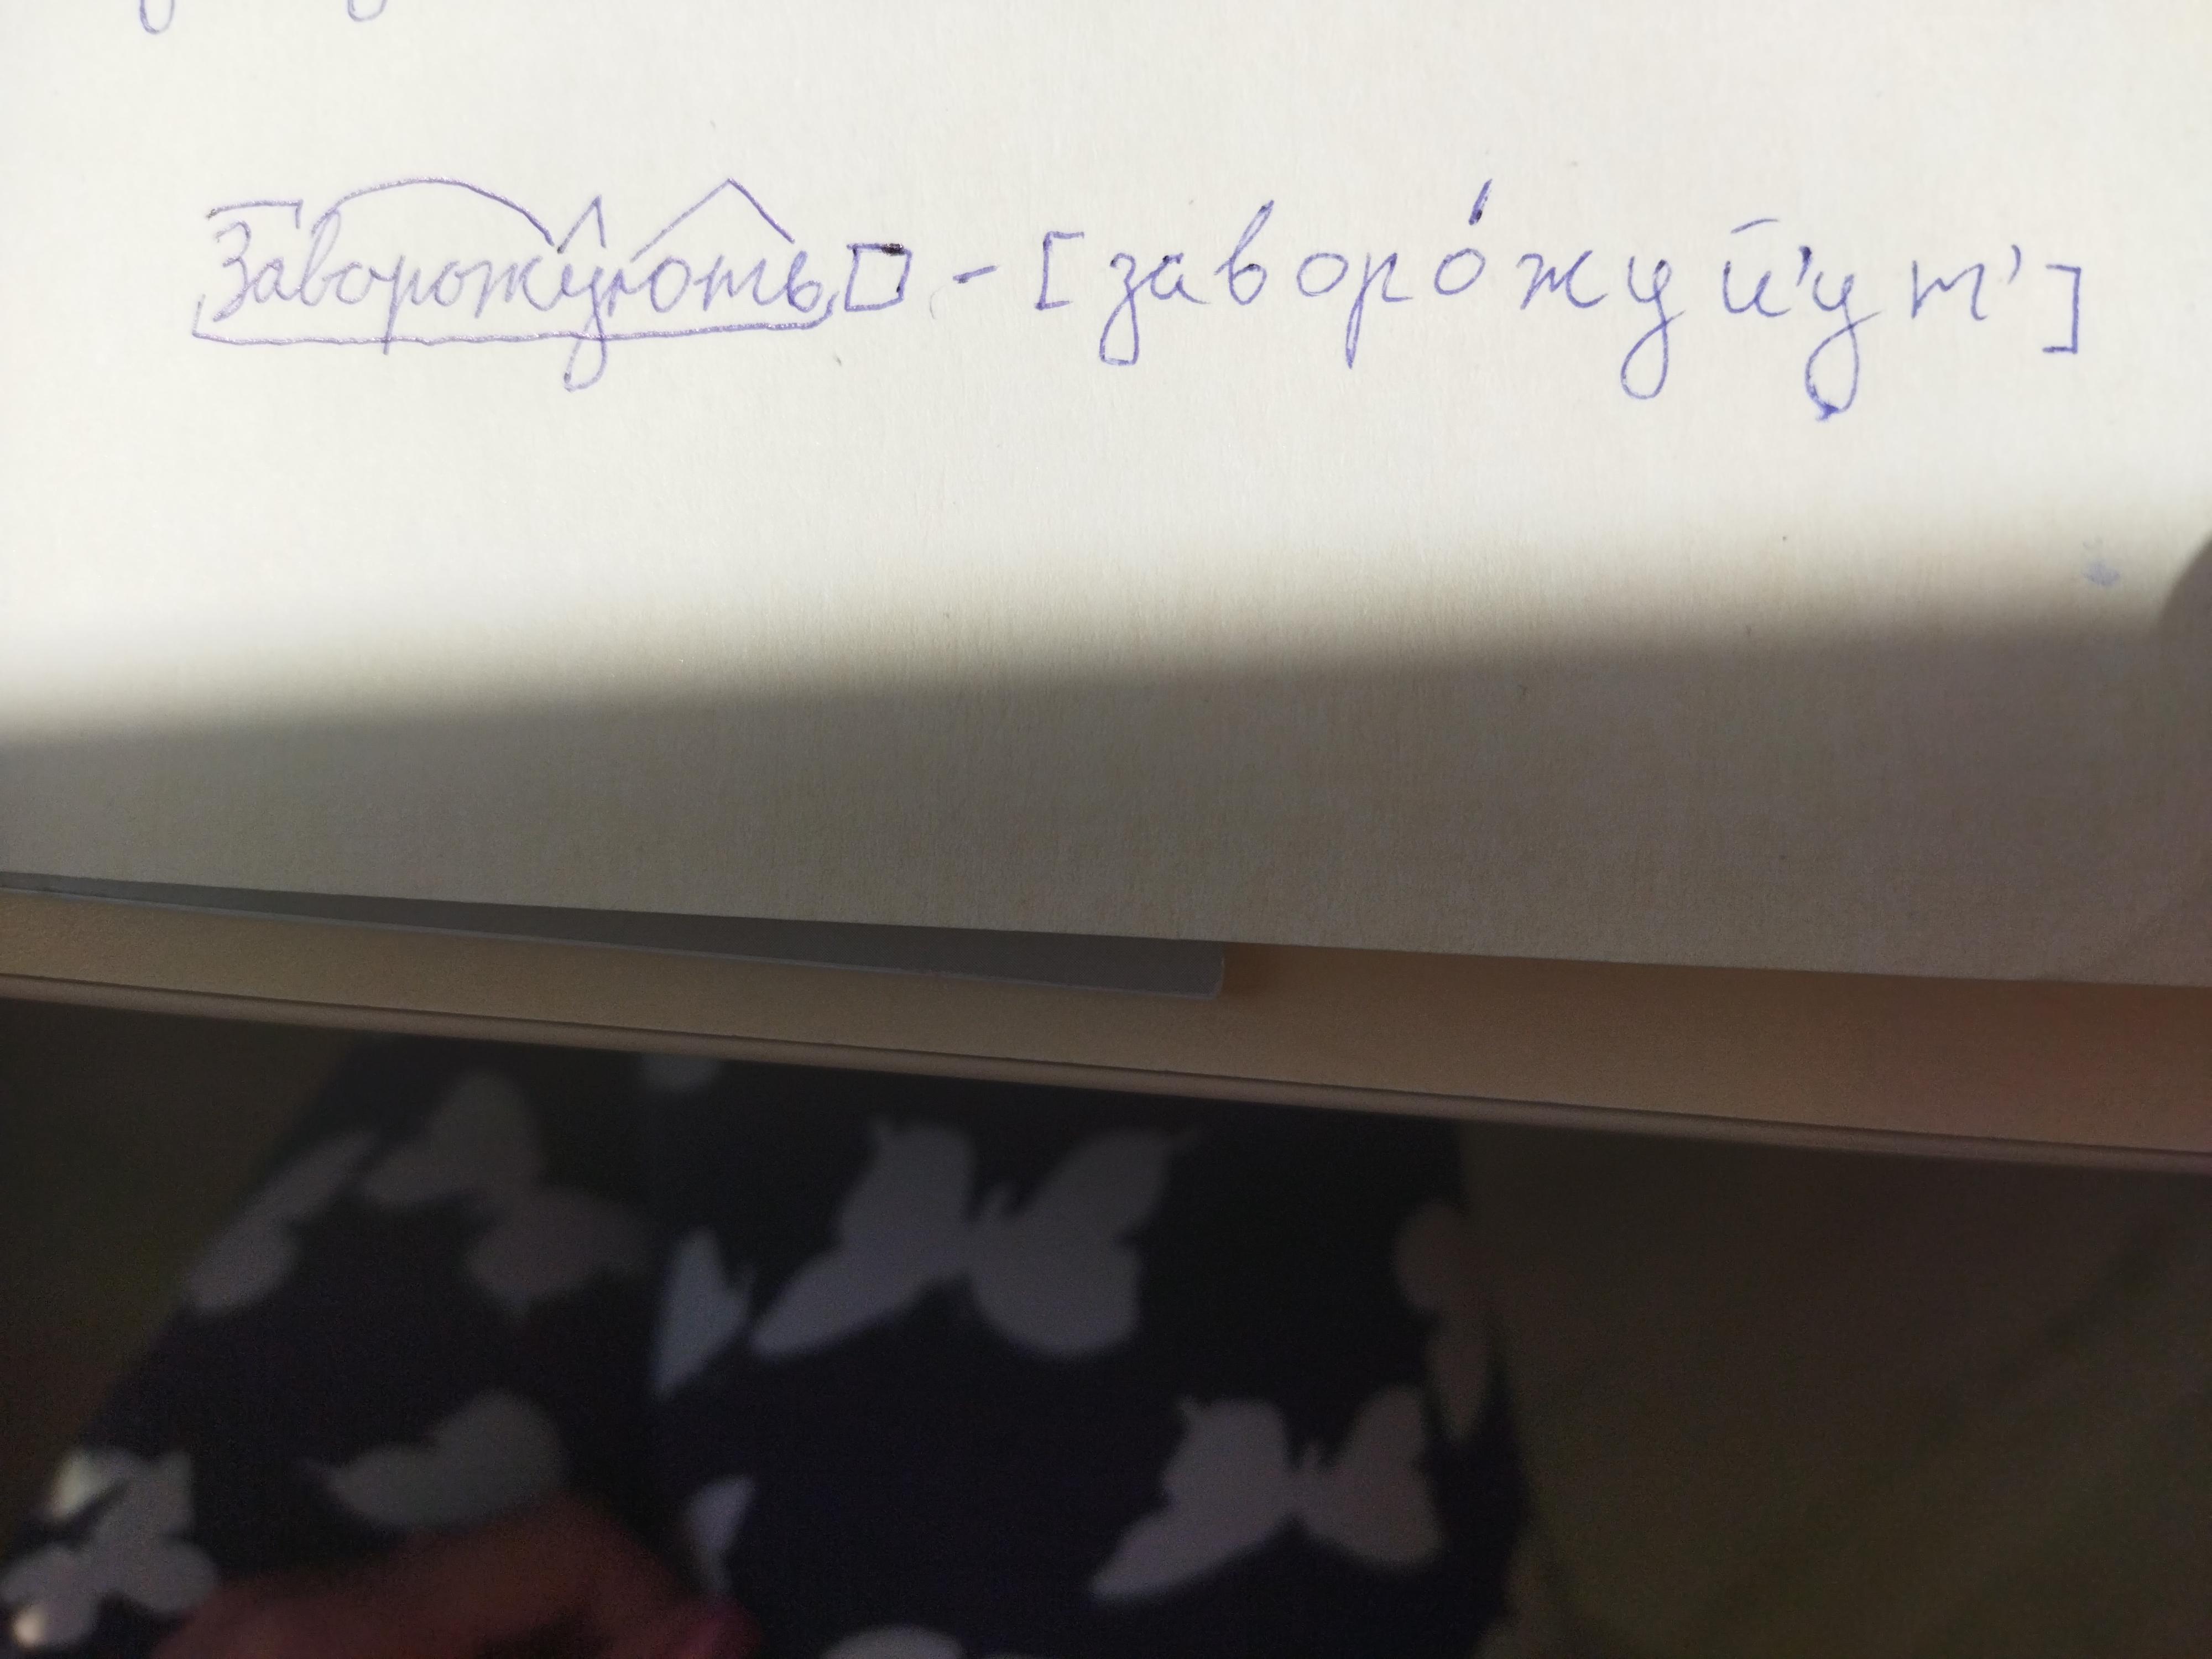 Заворожують □ - [заворо́жуй'ут']